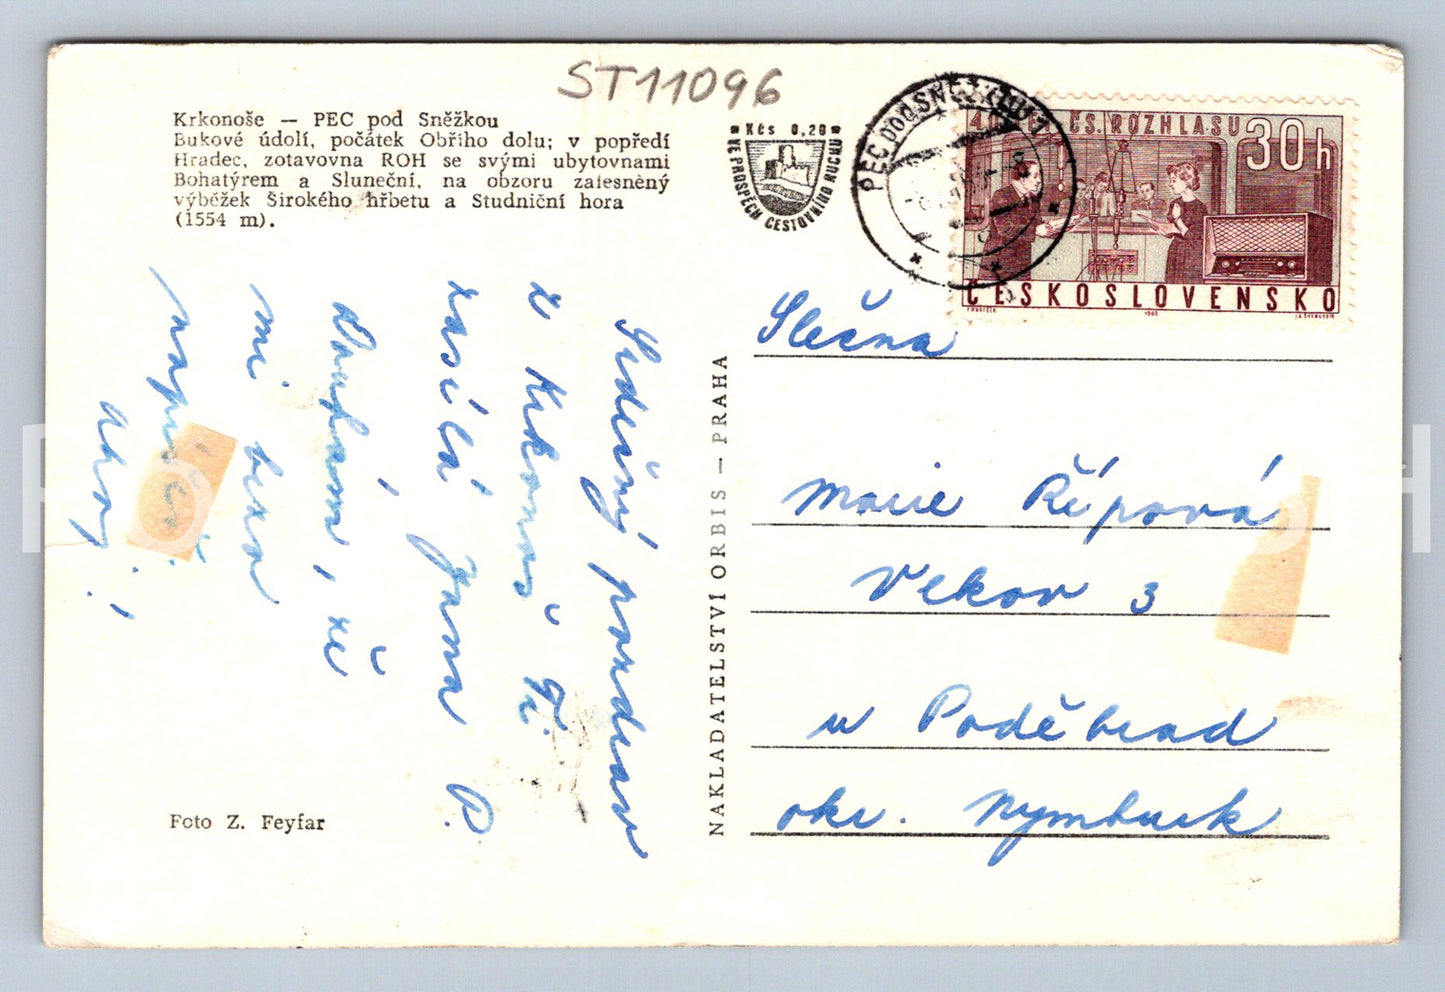 ST11096
Krkonoše — PEC pod Sněžkou
Bukové údolí, počátek Obřího dolu; v popředí
Hradec, zotavovna ROH se svými ubytovnami
Bohatýrem a Sluneční, na obzoru zalesněný
výběžek Širokého hřbetu a Studniční hora
(1554 m).
Kčs 0,20
VE PROSPĚCH CESTOVNÍHO RUCHU
PEC POD SNĚŽKOU
ČS. ROZHLASU 30h
ČESKOSLOVENSKO
1963
Srdečný pozdrav
z Krkonoš Ti
zasílá Jana P.
Doufám, že
mi brzo
napíšeš.
Ahoj!
NAKLADATELSTVÍ ORBIS — PRAHA
Slečna
Marie Řípová
Vekov 3
u Poděbrad
okr. Nymburk
Foto Z. Feyfar